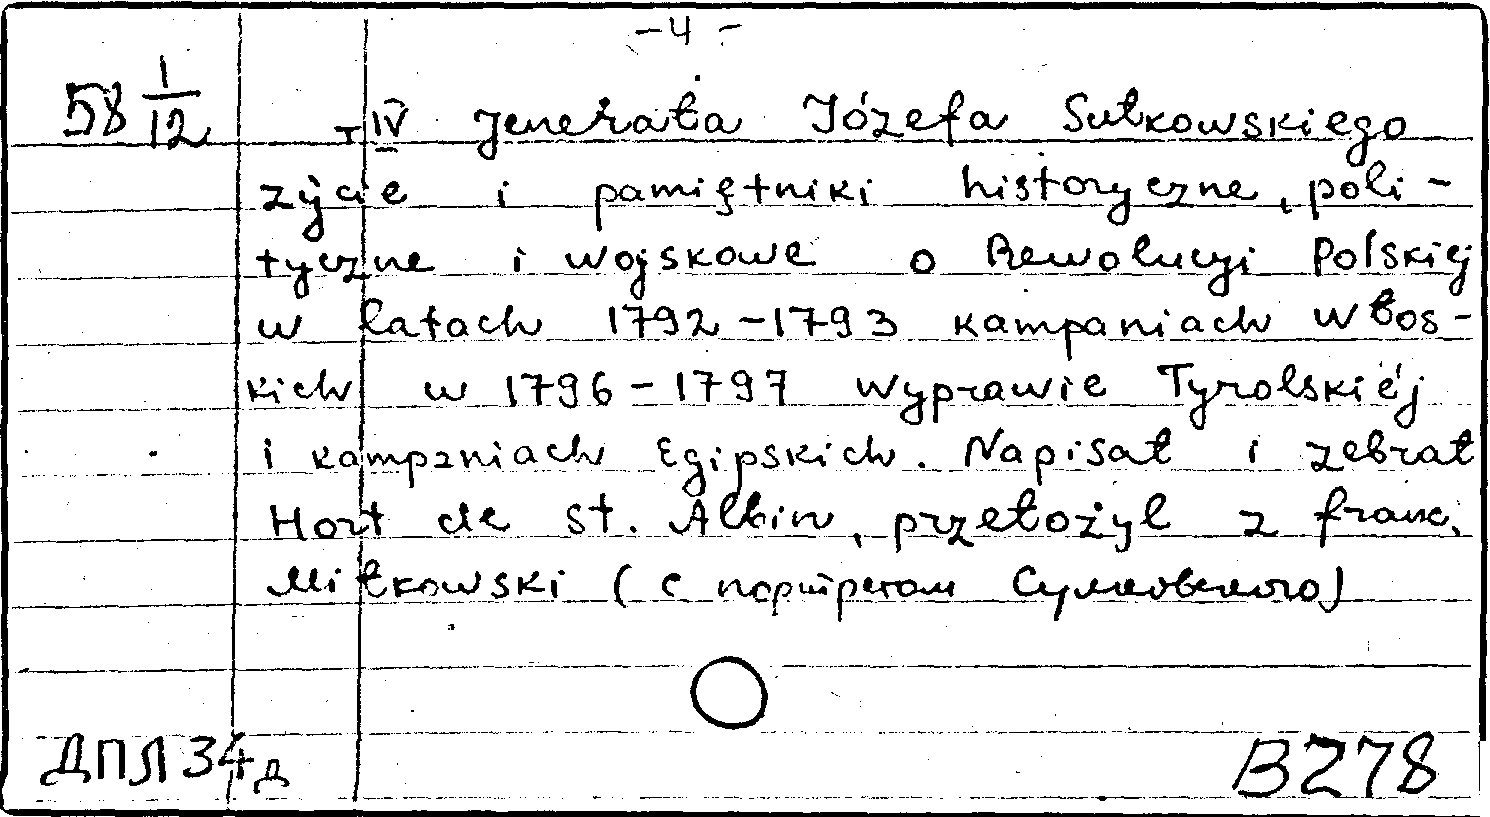 - 4 -
58 1/12
т. IV Jenerała Józefa Sułkowskiego
życie i pamiętniki historyczne, poli-
tyczne i wojskowe o Rewolucyi Polskiej
w latach 1792-1793 kampaniach włos-
kich w 1796-1797 wyprawie Tyrolskiéj
i kampaniach Egipskich. Napisał i zebrał
Hort de St. Albin, przełożył z franc.
Miłkowski (с портретом Сулковского)
ДПЛ 34д В278